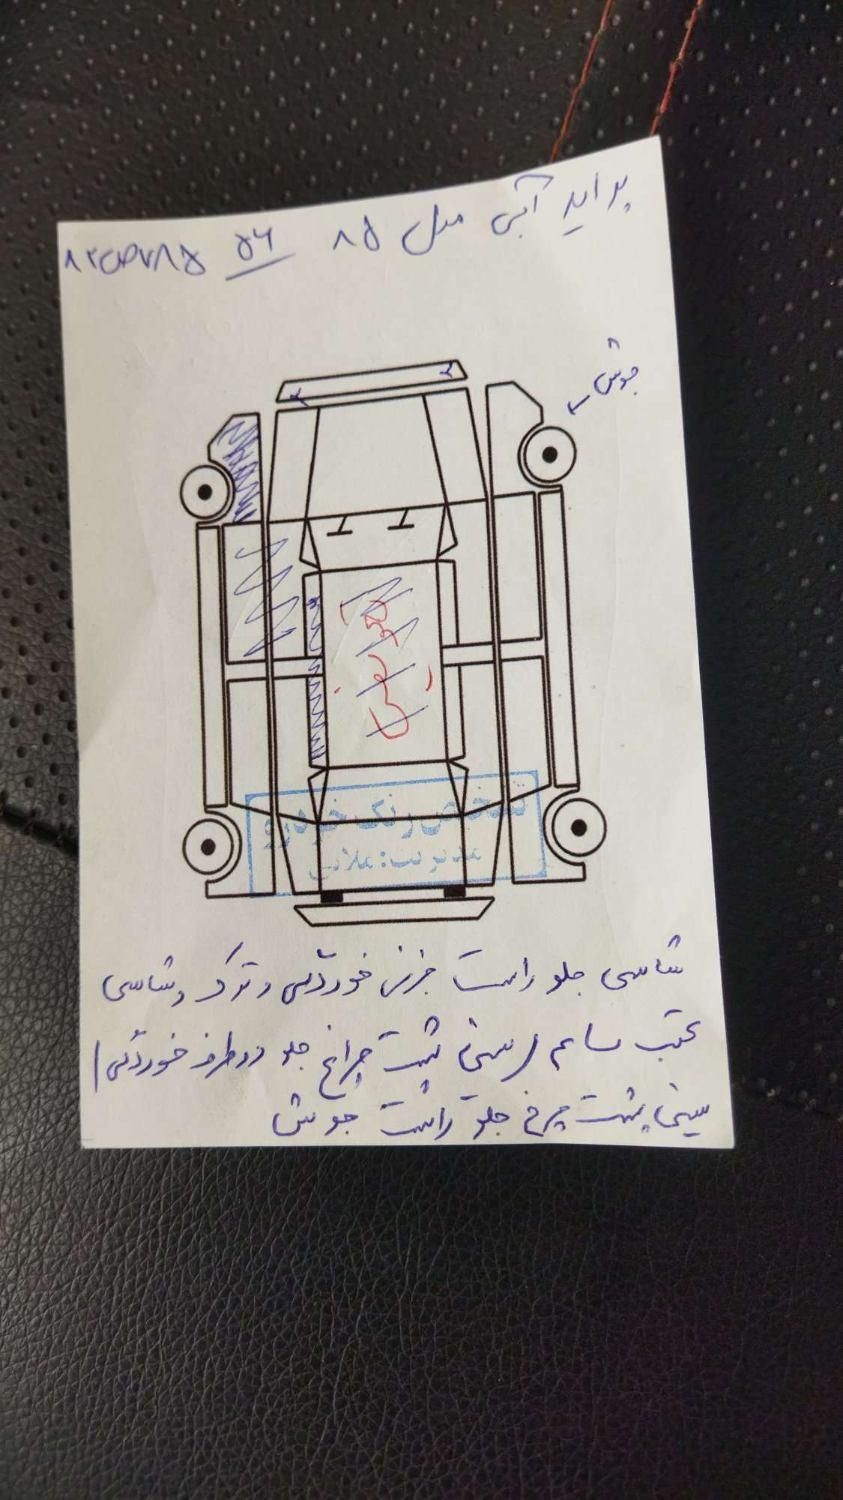 پراید آبی مدل ۸۵ ۵۶
جوش
تشخیص رنگ خودرو
مدیریت: علایی
شاسی جلو راست جزئی خوردگی و ترک و شاسی
عقب سالم (سینی پشت چراغ جلو دو طرف خوردگی)
سینی پشت چرخ جلو راست جوش